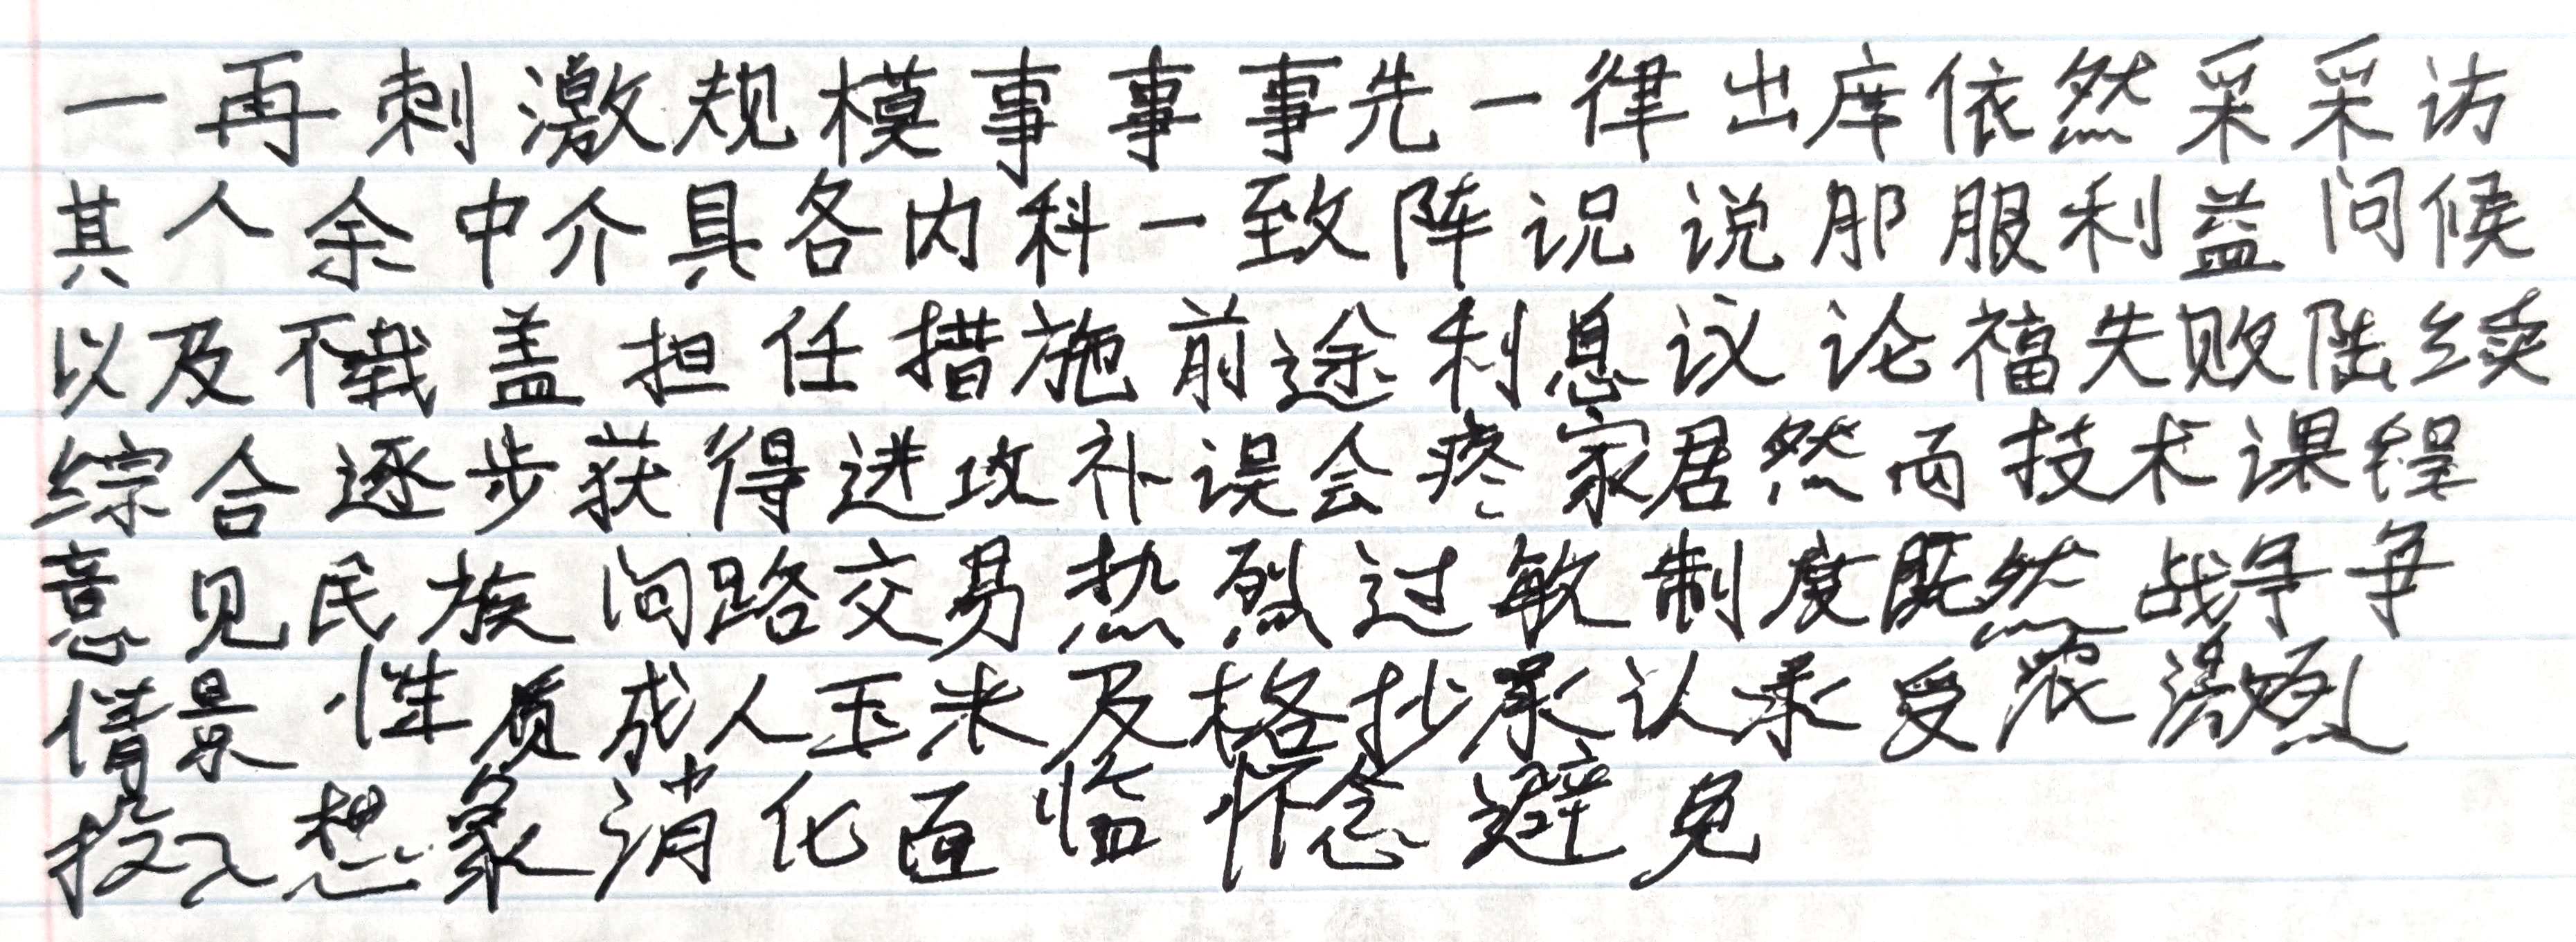 一再刺激规模事事事先一律出席依然采采访
其人余中介具各内科一致阵说说服服利益问候
以及不载盖担任措施前途利息议论福失败陆续
综合逐步获得进攻补误会疼家居然而技术课程
意见民族问路交易热烈过敏制度既然战争争
情景性质成人玉米及格抄承认承受浓激烈
投入想象消化面临怀念避免